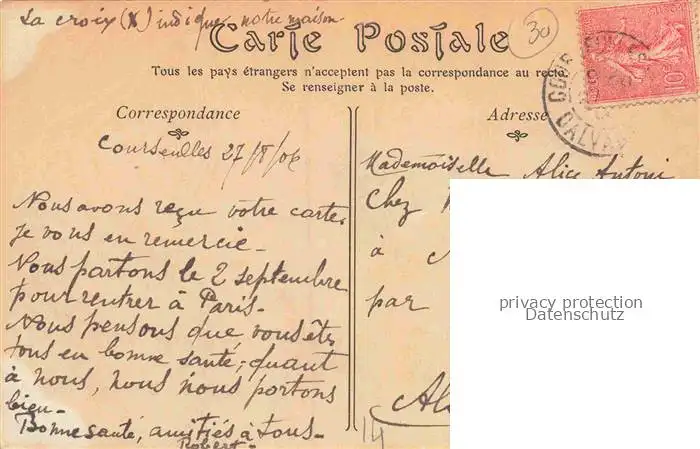 La croix (X) indique notre maison
30
Carte Postale
Tous les pays étrangers n'acceptent pas la correspondance au recto
Se renseigner à la poste.
Correspondance
Courseulles 27/8/06
Nous avons reçu votre carte,
je vous en remercie_
Nous partons le 2 septembre
pour rentrer à Paris_
Nous pensons que vous êtes
tous en bonne santé; quant
à nous, nous nous portons
bien_
Bonne santé, amitiés à tous_
Robert_
Adresse
CALVA
10
Mademoiselle Alice Antoni
Chez
à
par
14
privacy protection
Datenschutz